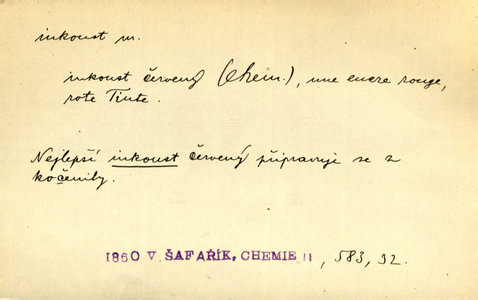 inkoust m.
inkoust červený (Chem.), une encre rouge,
rote Tinte.
Nejlepší inkoust červený připravuje se z
kočenily.
1860 V. ŠAFAŘÍK, CHEMIE II, 583, 32.